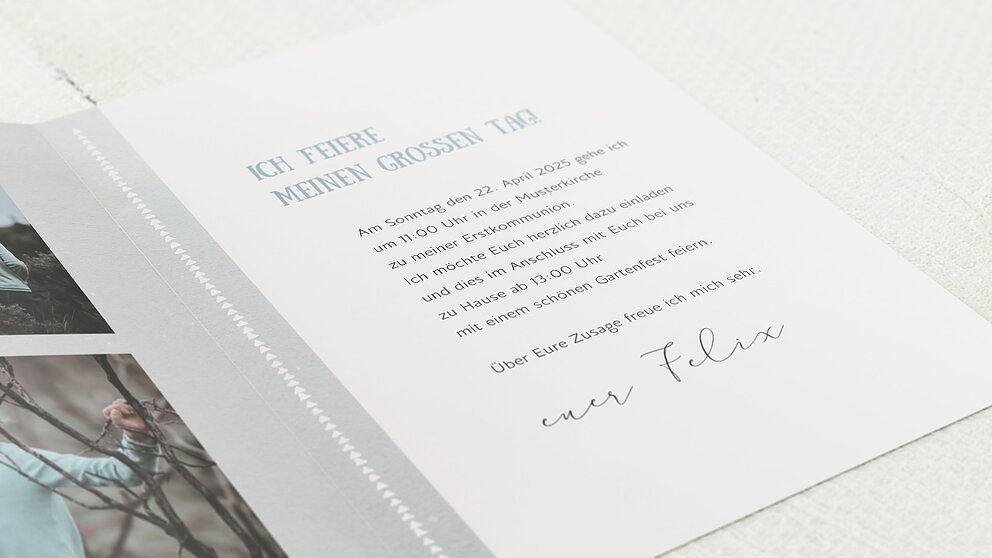 ICH FEIERE
MEINEN GROSSEN TAG!
Am Sonntag den 22. April 2025 gehe ich
um 11:00 Uhr in der Musterkirche
zu meiner Erstkommunion.
Ich möchte Euch herzlich dazu einladen
und dies im Anschluss mit Euch bei uns
zu Hause ab 13:00 Uhr
mit einem schönen Gartenfest feiern.
Über Eure Zusage freue ich mich sehr.
euer Felix